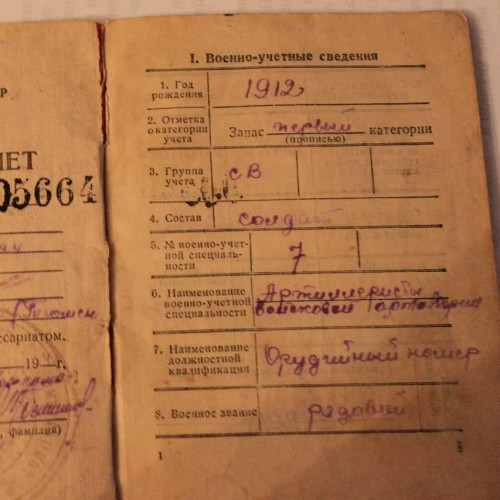 ЛЕТ
05664
ссариатом.
19 — г.
, фамилия)
I. Военно-учетные сведения
1. Год рождения 1912
2. Отметка о категории учета Запас первый категории
(прописью)
3. Группа учета СВ
4. Состав солдат
5. № военно-учетной специальности 7
6. Наименование военно-учетной специальности Артиллеристы войсковой артиллерии
7. Наименование должностной квалификации Орудийный номер
8. Военное звание рядовой
1